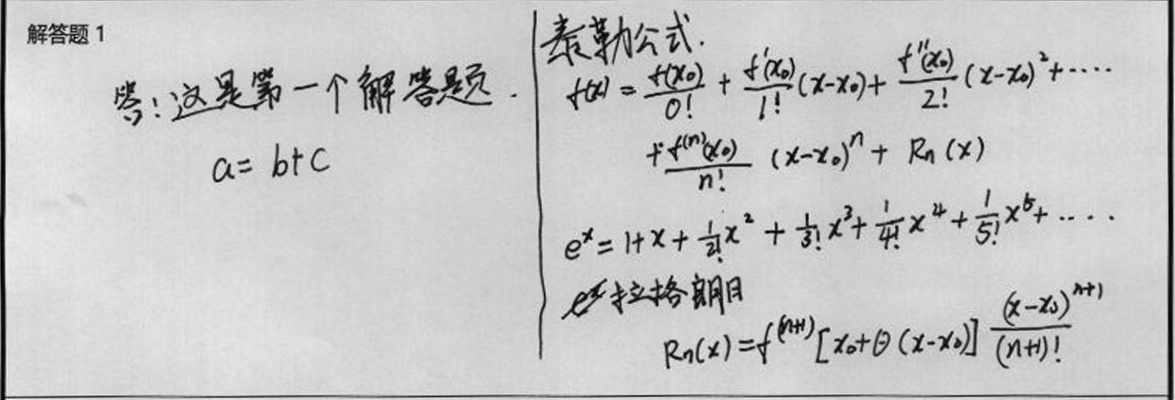 解答题 1
答：这是第一个解答题.
a = b+c
泰勒公式.
f(x) = f(x₀)/0! + f'(x₀)/1! (x-x₀) + f''(x₀)/2! (x-x₀)² + ....
+ f⁽ⁿ⁾(x₀)/n! (x-x₀)ⁿ + Rn(x)
eˣ = 1+x + 1/2! x² + 1/3! x³ + 1/4! x⁴ + 1/5! x⁵ + ....
拉格朗日
Rn(x) = f⁽ⁿ⁺¹⁾[x₀+θ(x-x₀)] (x-x₀)ⁿ⁺¹/(n+1)!